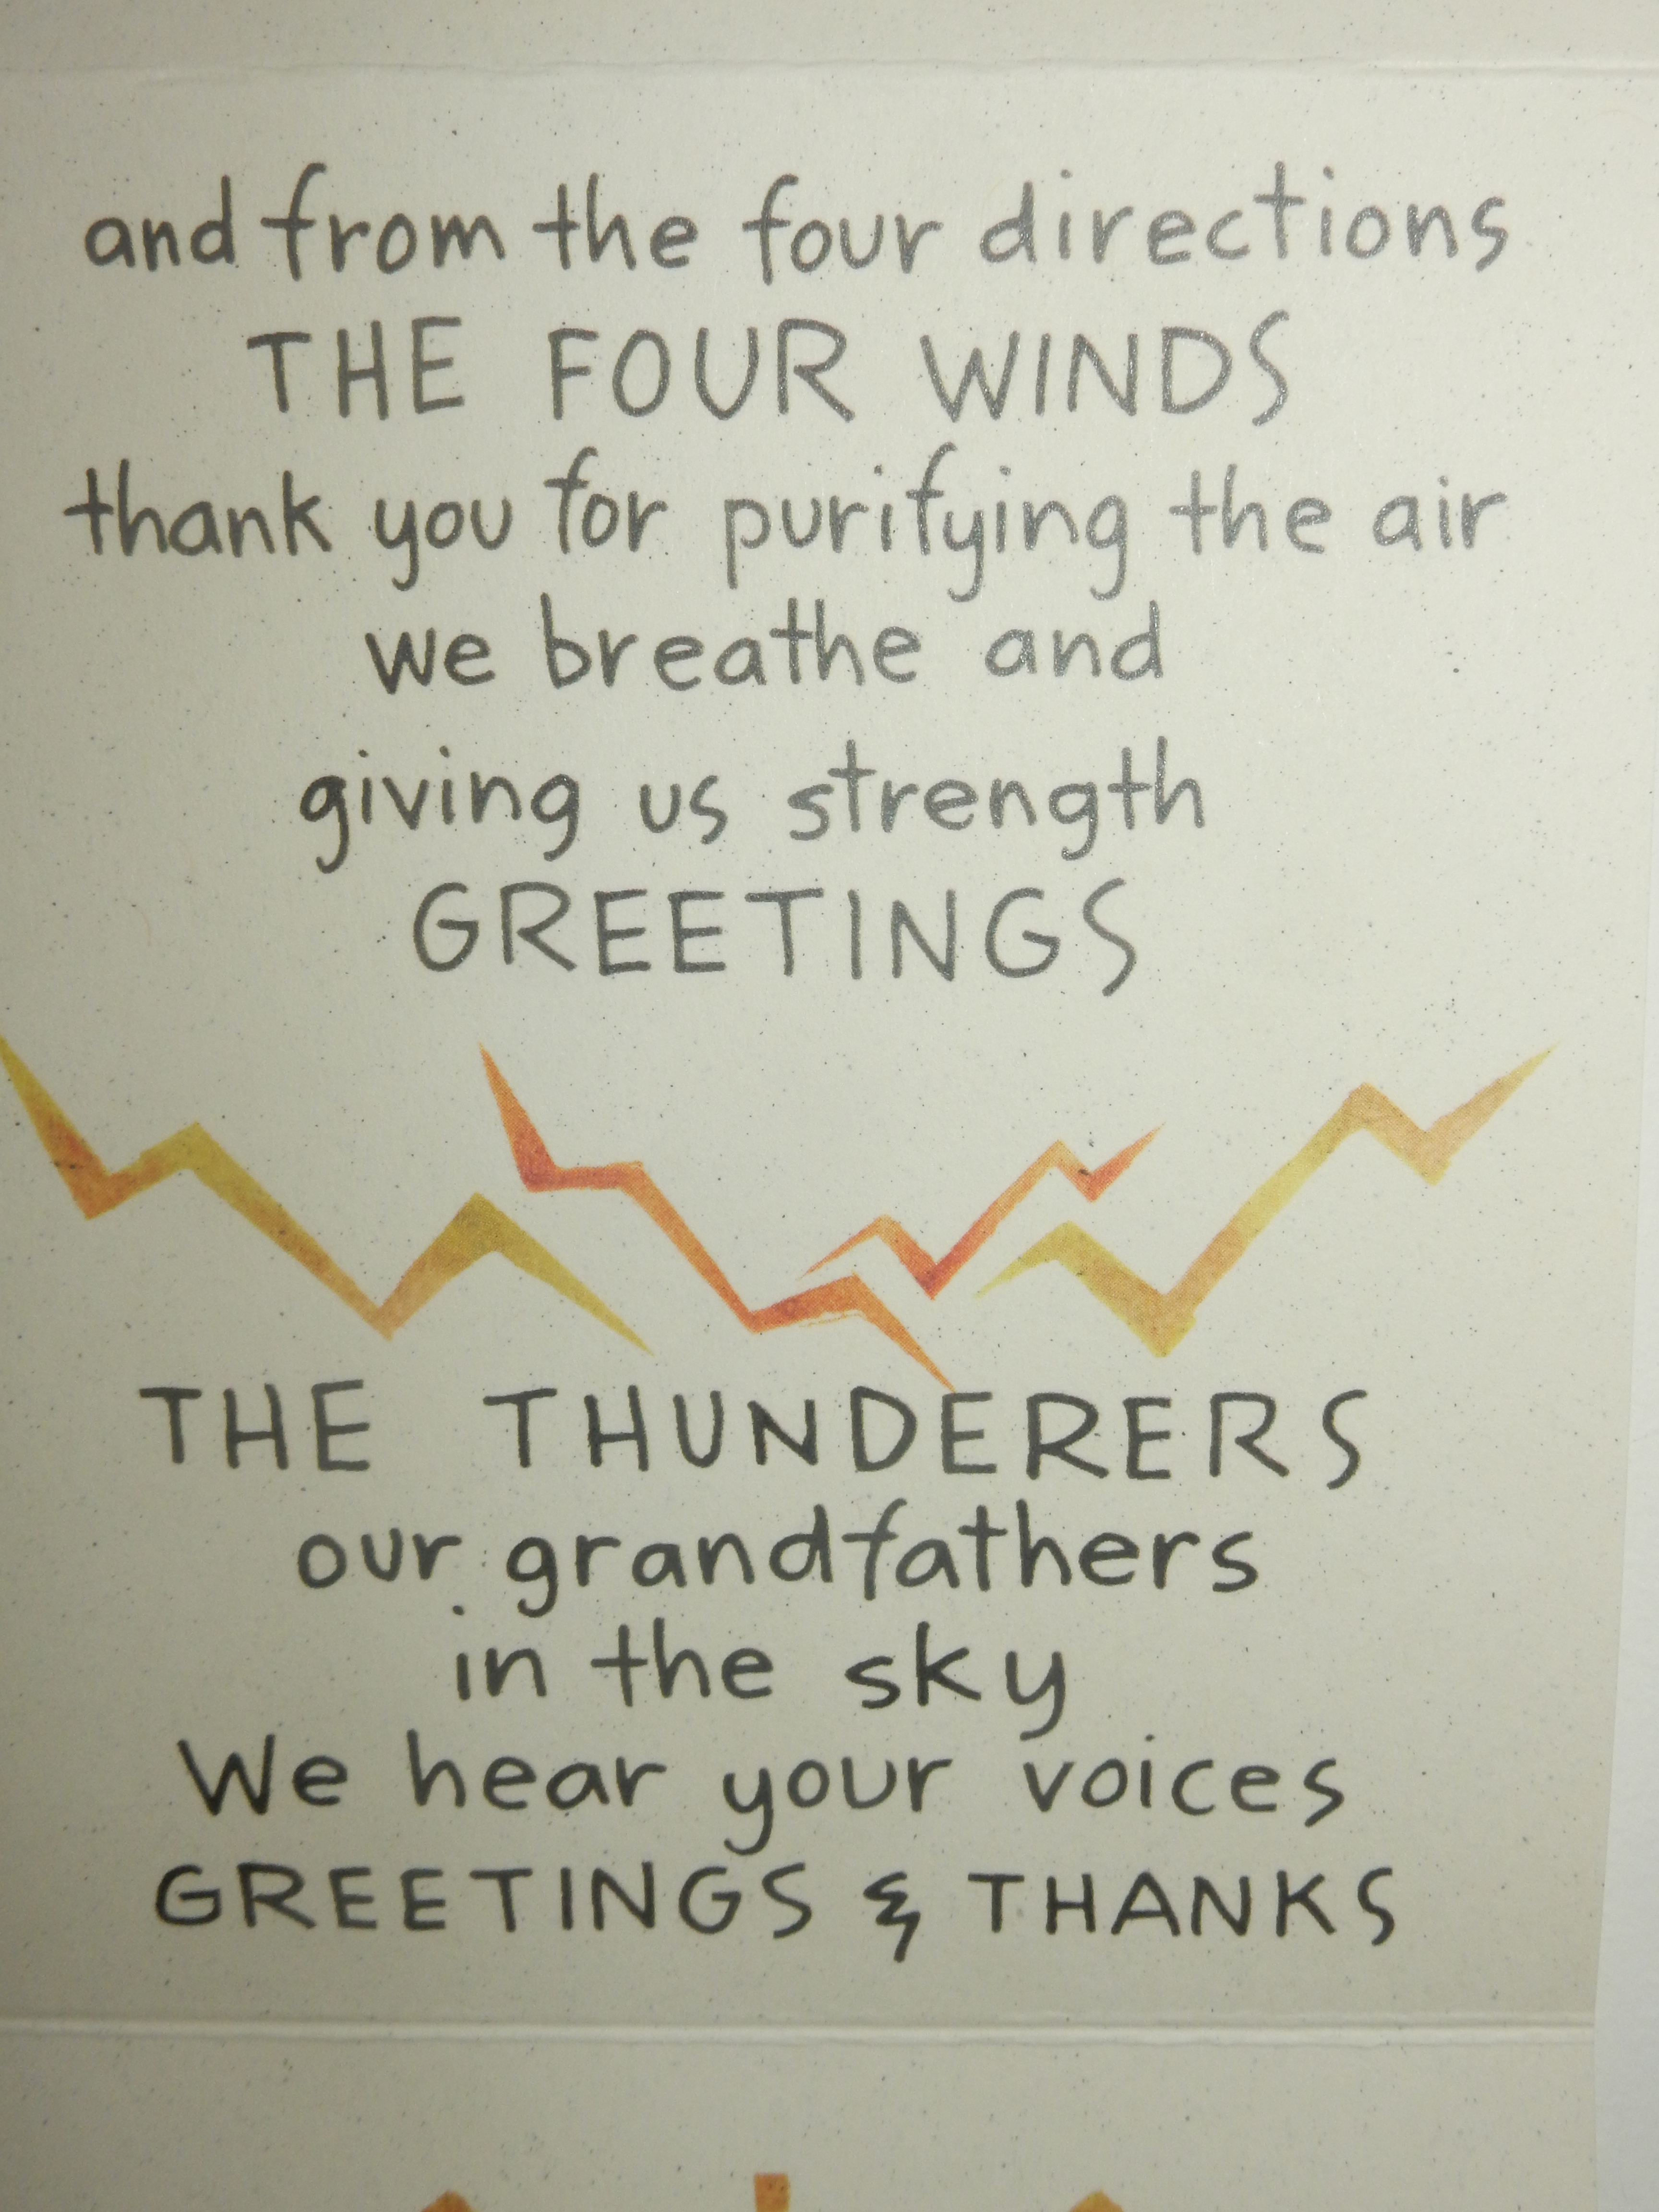 and from the four directions
THE FOUR WINDS
thank you for purifying the air
we breathe and
giving us strength
GREETINGS
THE THUNDERERS
our grandfathers
in the sky
We hear your voices
GREETINGS & THANKS